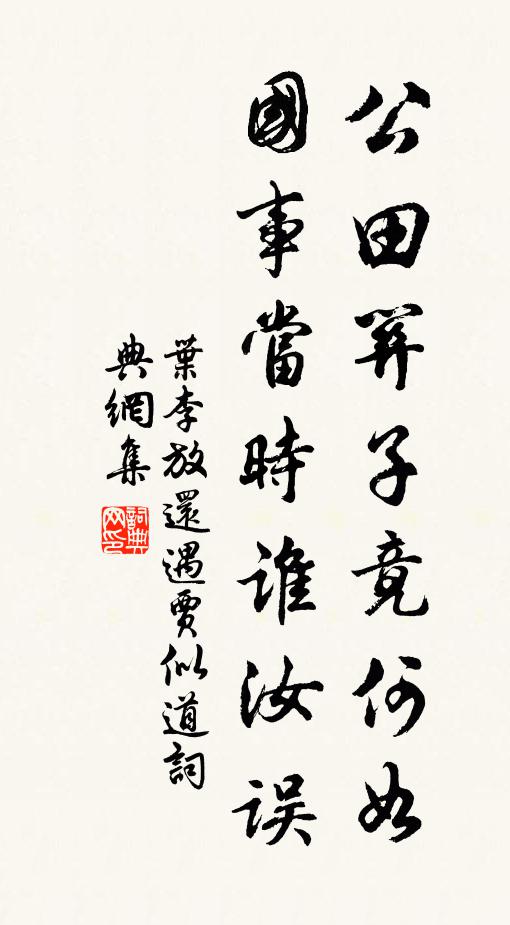 公田關子竟何如
國事當時誰汝誤
葉李放還遇賈似道詞
典網集
詞典
网印